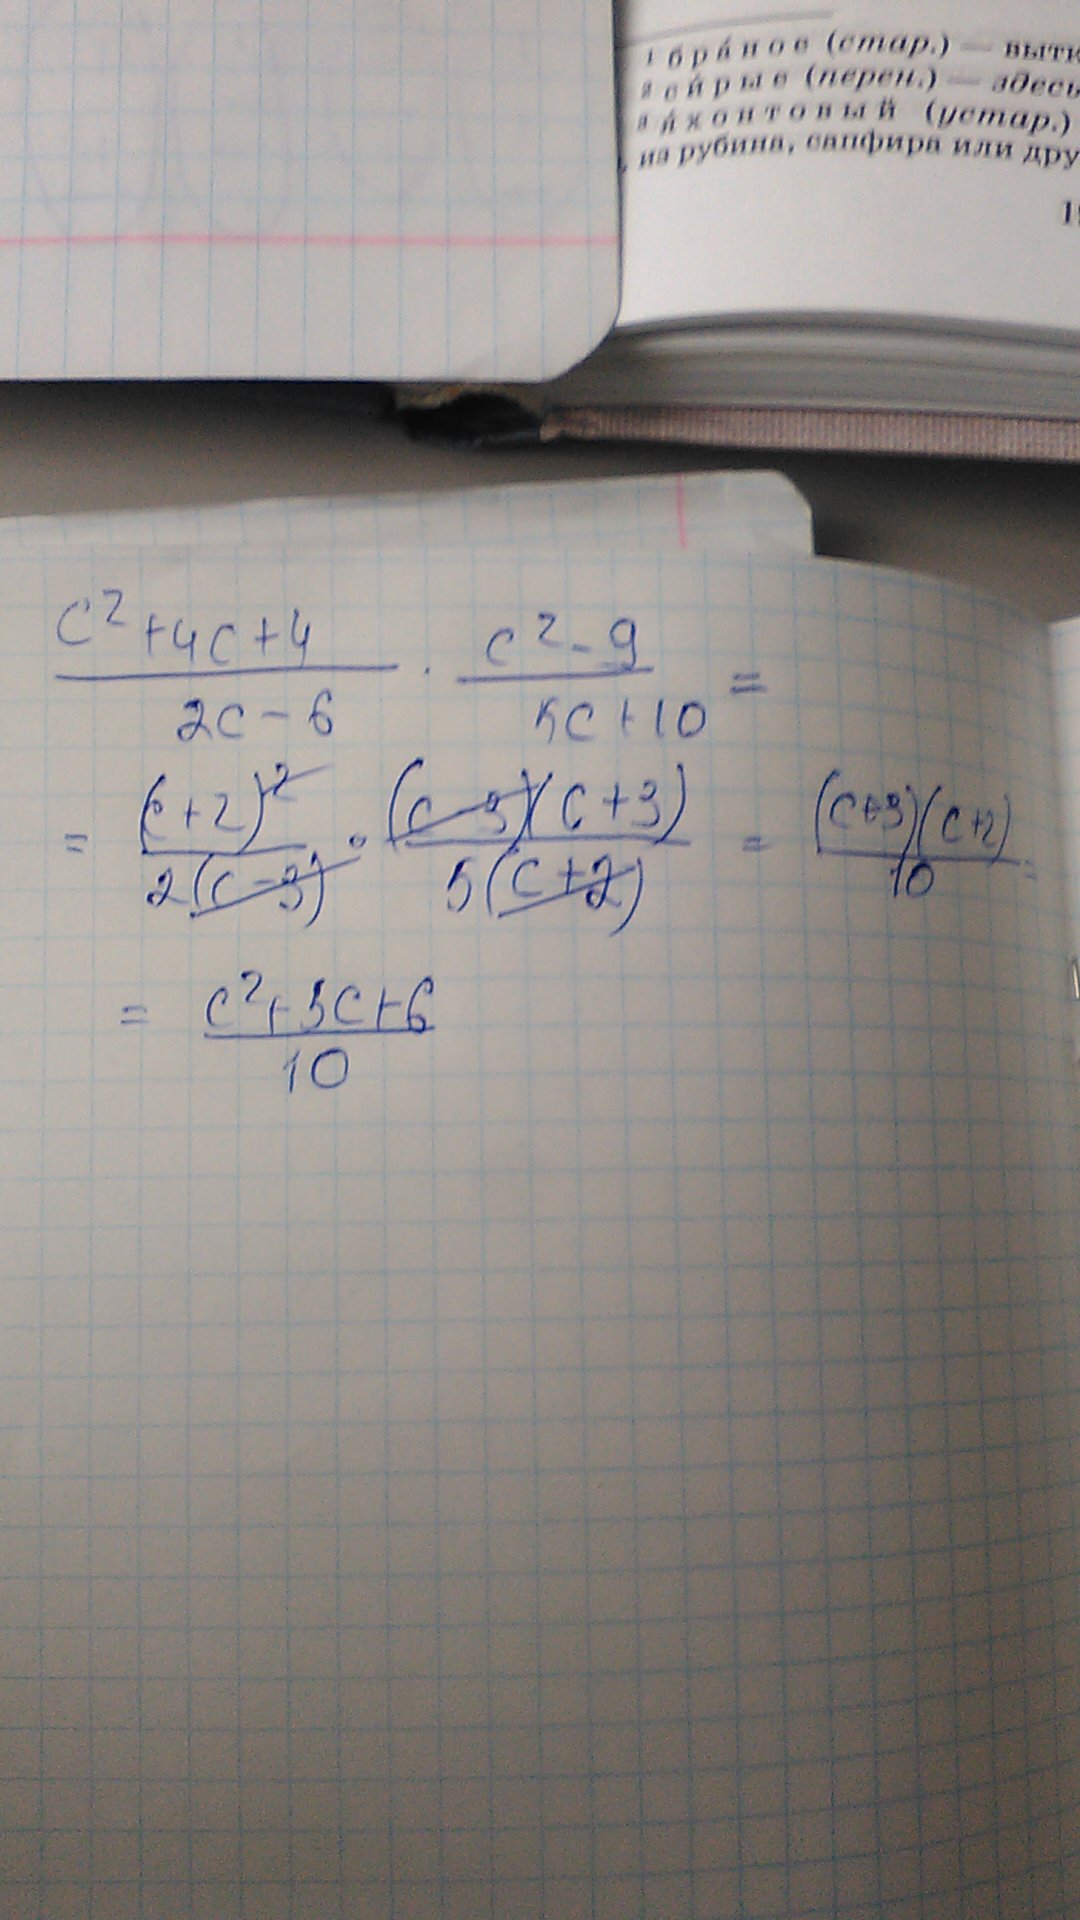 ¹ бра́ное (стар.) — вытк
² си́рые (перен.) — здесь
³ я́хонтовый (устар.)
из рубина, сапфира или дру
(c²+4c+4)/(2c-6) · (c²-9)/(5c+10) =
= (c+2)²/(2(c-3)) · ((c-3)(c+3))/(5(c+2)) = ((c+3)(c+2))/10 =
= (c²+5c+6)/10